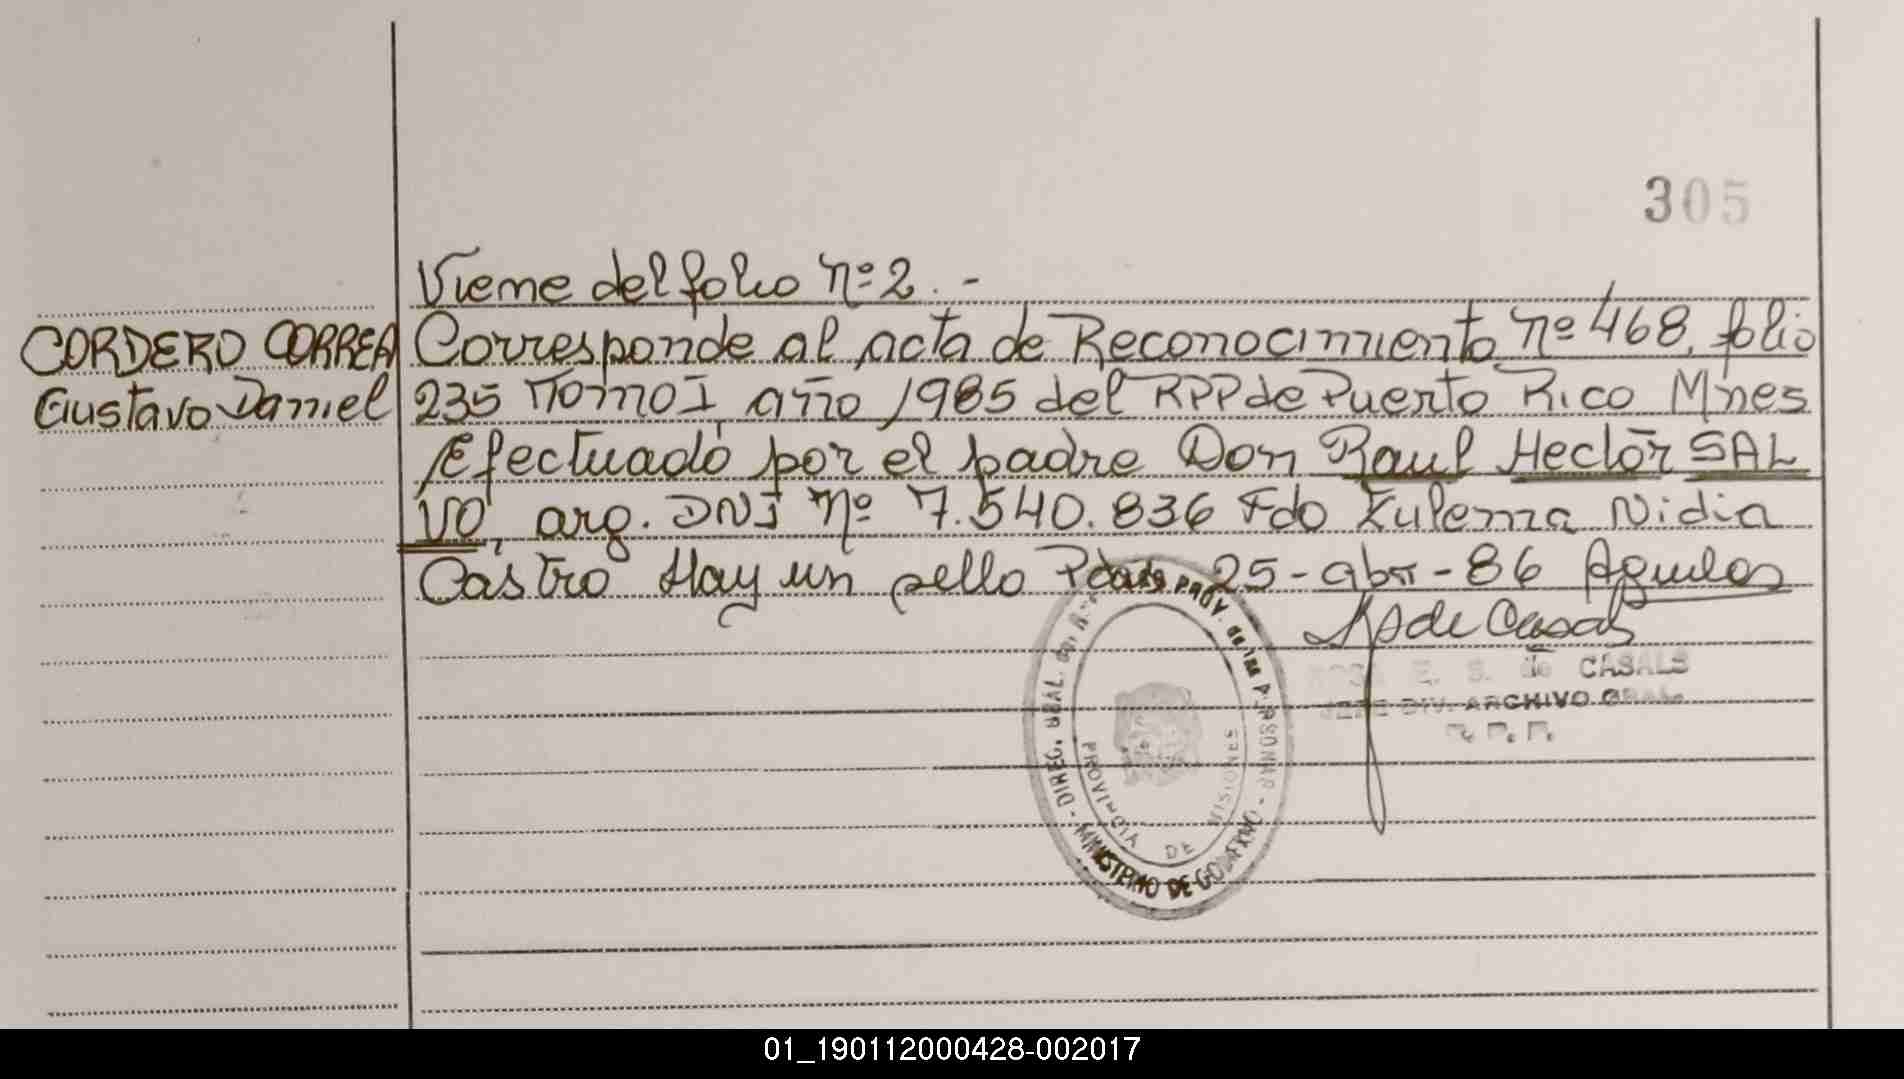 305
Viene del folio nº 2. -
CORDERO CORREA Corresponde al acta de Reconocimiento nº 468, folio
Gustavo Daniel 235 Tomo I, año 1985 del RPP de Puerto Rico Mnes
Efectuado por el padre Don Raul Hector SAL
VO, arg. DNI nº 7.540.836 Fdo Zulema Nidia
Castro Hay un sello Pdas 25-abr-86 Aguilar
de Casals
E. S. de CASALS
JEFE DIV. ARCHIVO GRAL.
R. P. P.
DIREC. GRAL. DEL R. PROV. DE LAS PERSONAS - MINISTERIO DE GOBIERNO -
PROVINCIA DE MISIONES
01_190112000428-002017